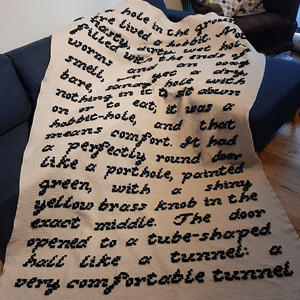 hole in the ground
there lived a hobbit. Not
a nasty, dirty, wet hole
filled with the ends of
worms and an oozy
smell, nor yet a dry,
bare, sandy hole with
nothing in it to sit down
on or to eat; it was a
hobbit-hole, and that
means comfort. It had
a perfectly round door
like a porthole, painted
green, with a shiny
yellow brass knob in the
exact middle. The door
opened to a tube-shaped
hall like a tunnel: a
very comfortable tunnel